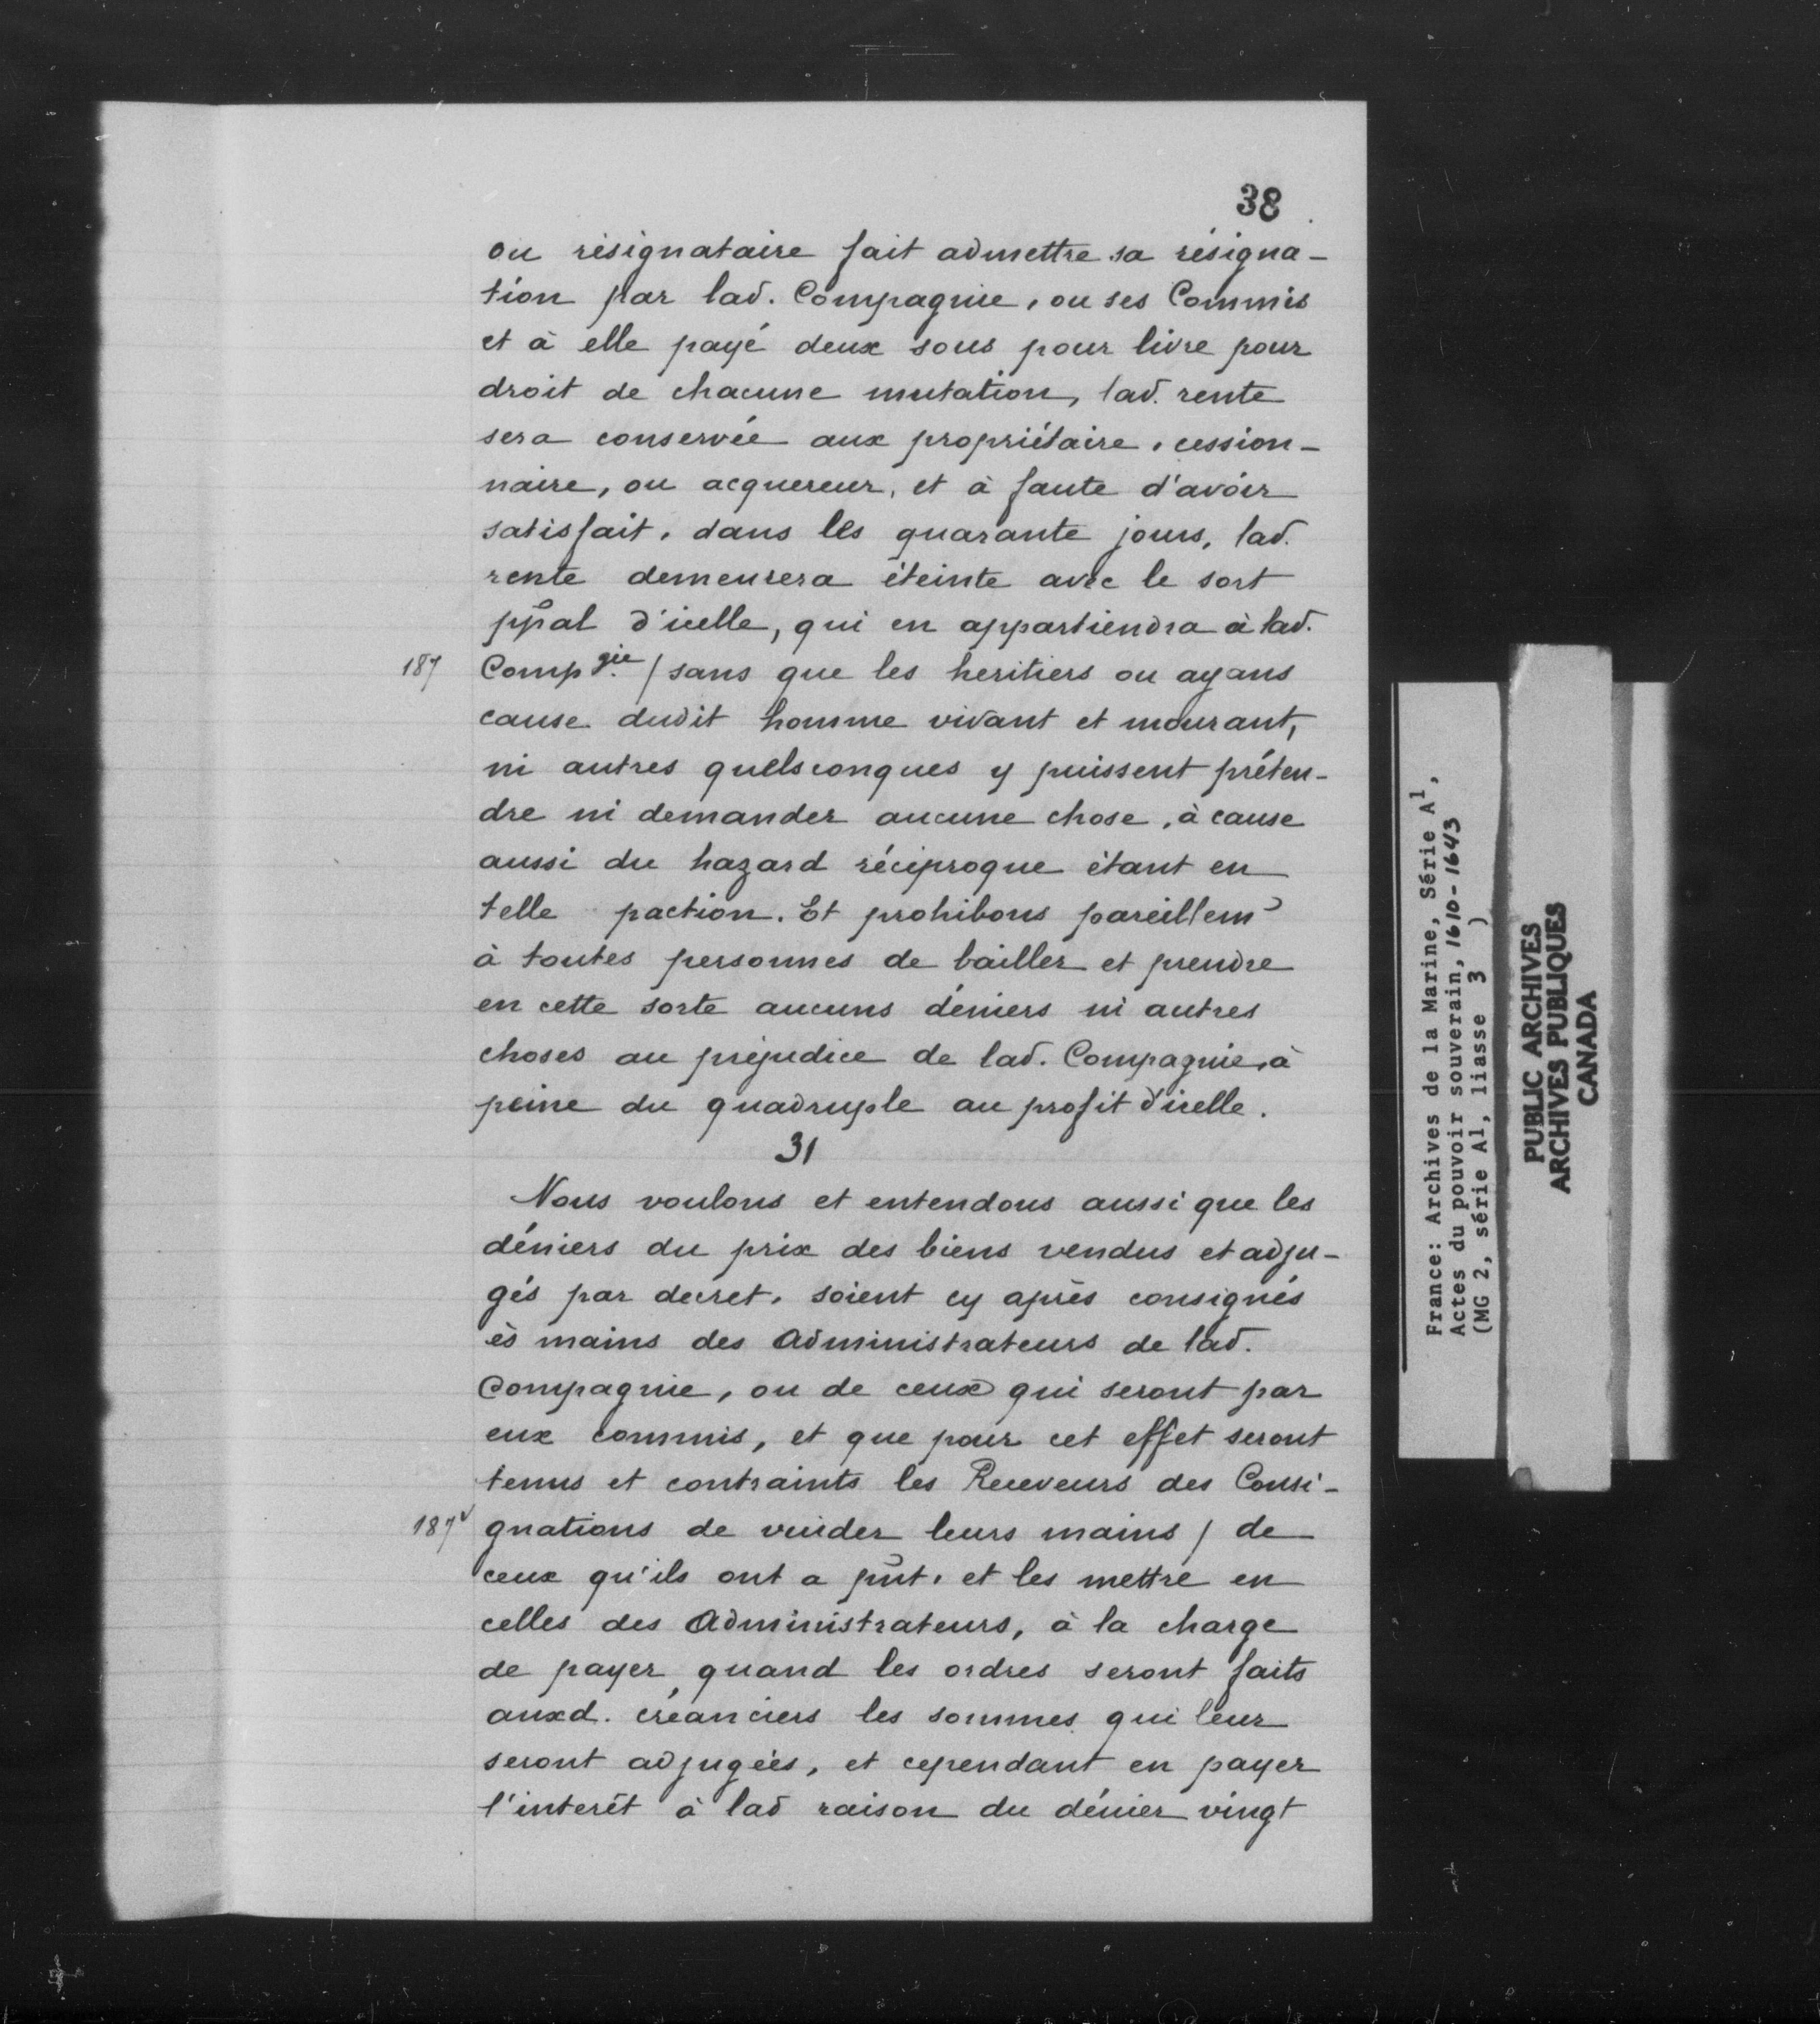 38
ou résignataire fait admettre sa résigna-
tion par lad. Compagnie, ou ses Commis
et à elle payé deux sous pour livre pour
droit de chacune mutation, lad. rente
sera conservée aux propriétaire, cession-
naire, ou acquereur, et à faute d'avoir
satisfait, dans les quarante jours, lad.
rente demeurera éteinte avec le sort
ppal d'icelle, qui en appartiendra à lad.
187 Compgie. / sans que les heritiers ou ayans
cause dudit homme vivant et mourant,
ni autres quelsconques y puissent préten-
dre ni demander aucune chose, à cause
aussi du hazard réciproque étant en
telle paction. Et prohibons pareillem
à toutes personnes de bailler et prendre
en cette sorte aucuns déniers ni autres
choses au préjudice de lad. Compagnie, à
peine du quadruple au profit d'icelle.
31
Nous voulons et entendons aussi que les
déniers du prix des biens vendus et adju-
gés par decret, soient cy après consignés
ès mains des Administrateurs de lad.
Compagnie, ou de ceux qui seront par
eux commis, et que pour cet effet seront
tenus et contraints les Receveurs des Consi-
187v gnations de vuider leurs mains / de
ceux qu'ils ont a pnt. et les mettre en
celles des Administrateurs, à la charge
de payer, quand les ordres seront faits
auxd. créanciers les sommes qui leur
seront adjugées, et cependant en payer
l'interêt à lad raison du dénier vingt
France: Archives de la Marine, Série A1,
Actes du pouvoir souverain, 1610-1643
(MG 2, série A1, liasse 3 )
PUBLIC ARCHIVES
ARCHIVES PUBLIQUES
CANADA